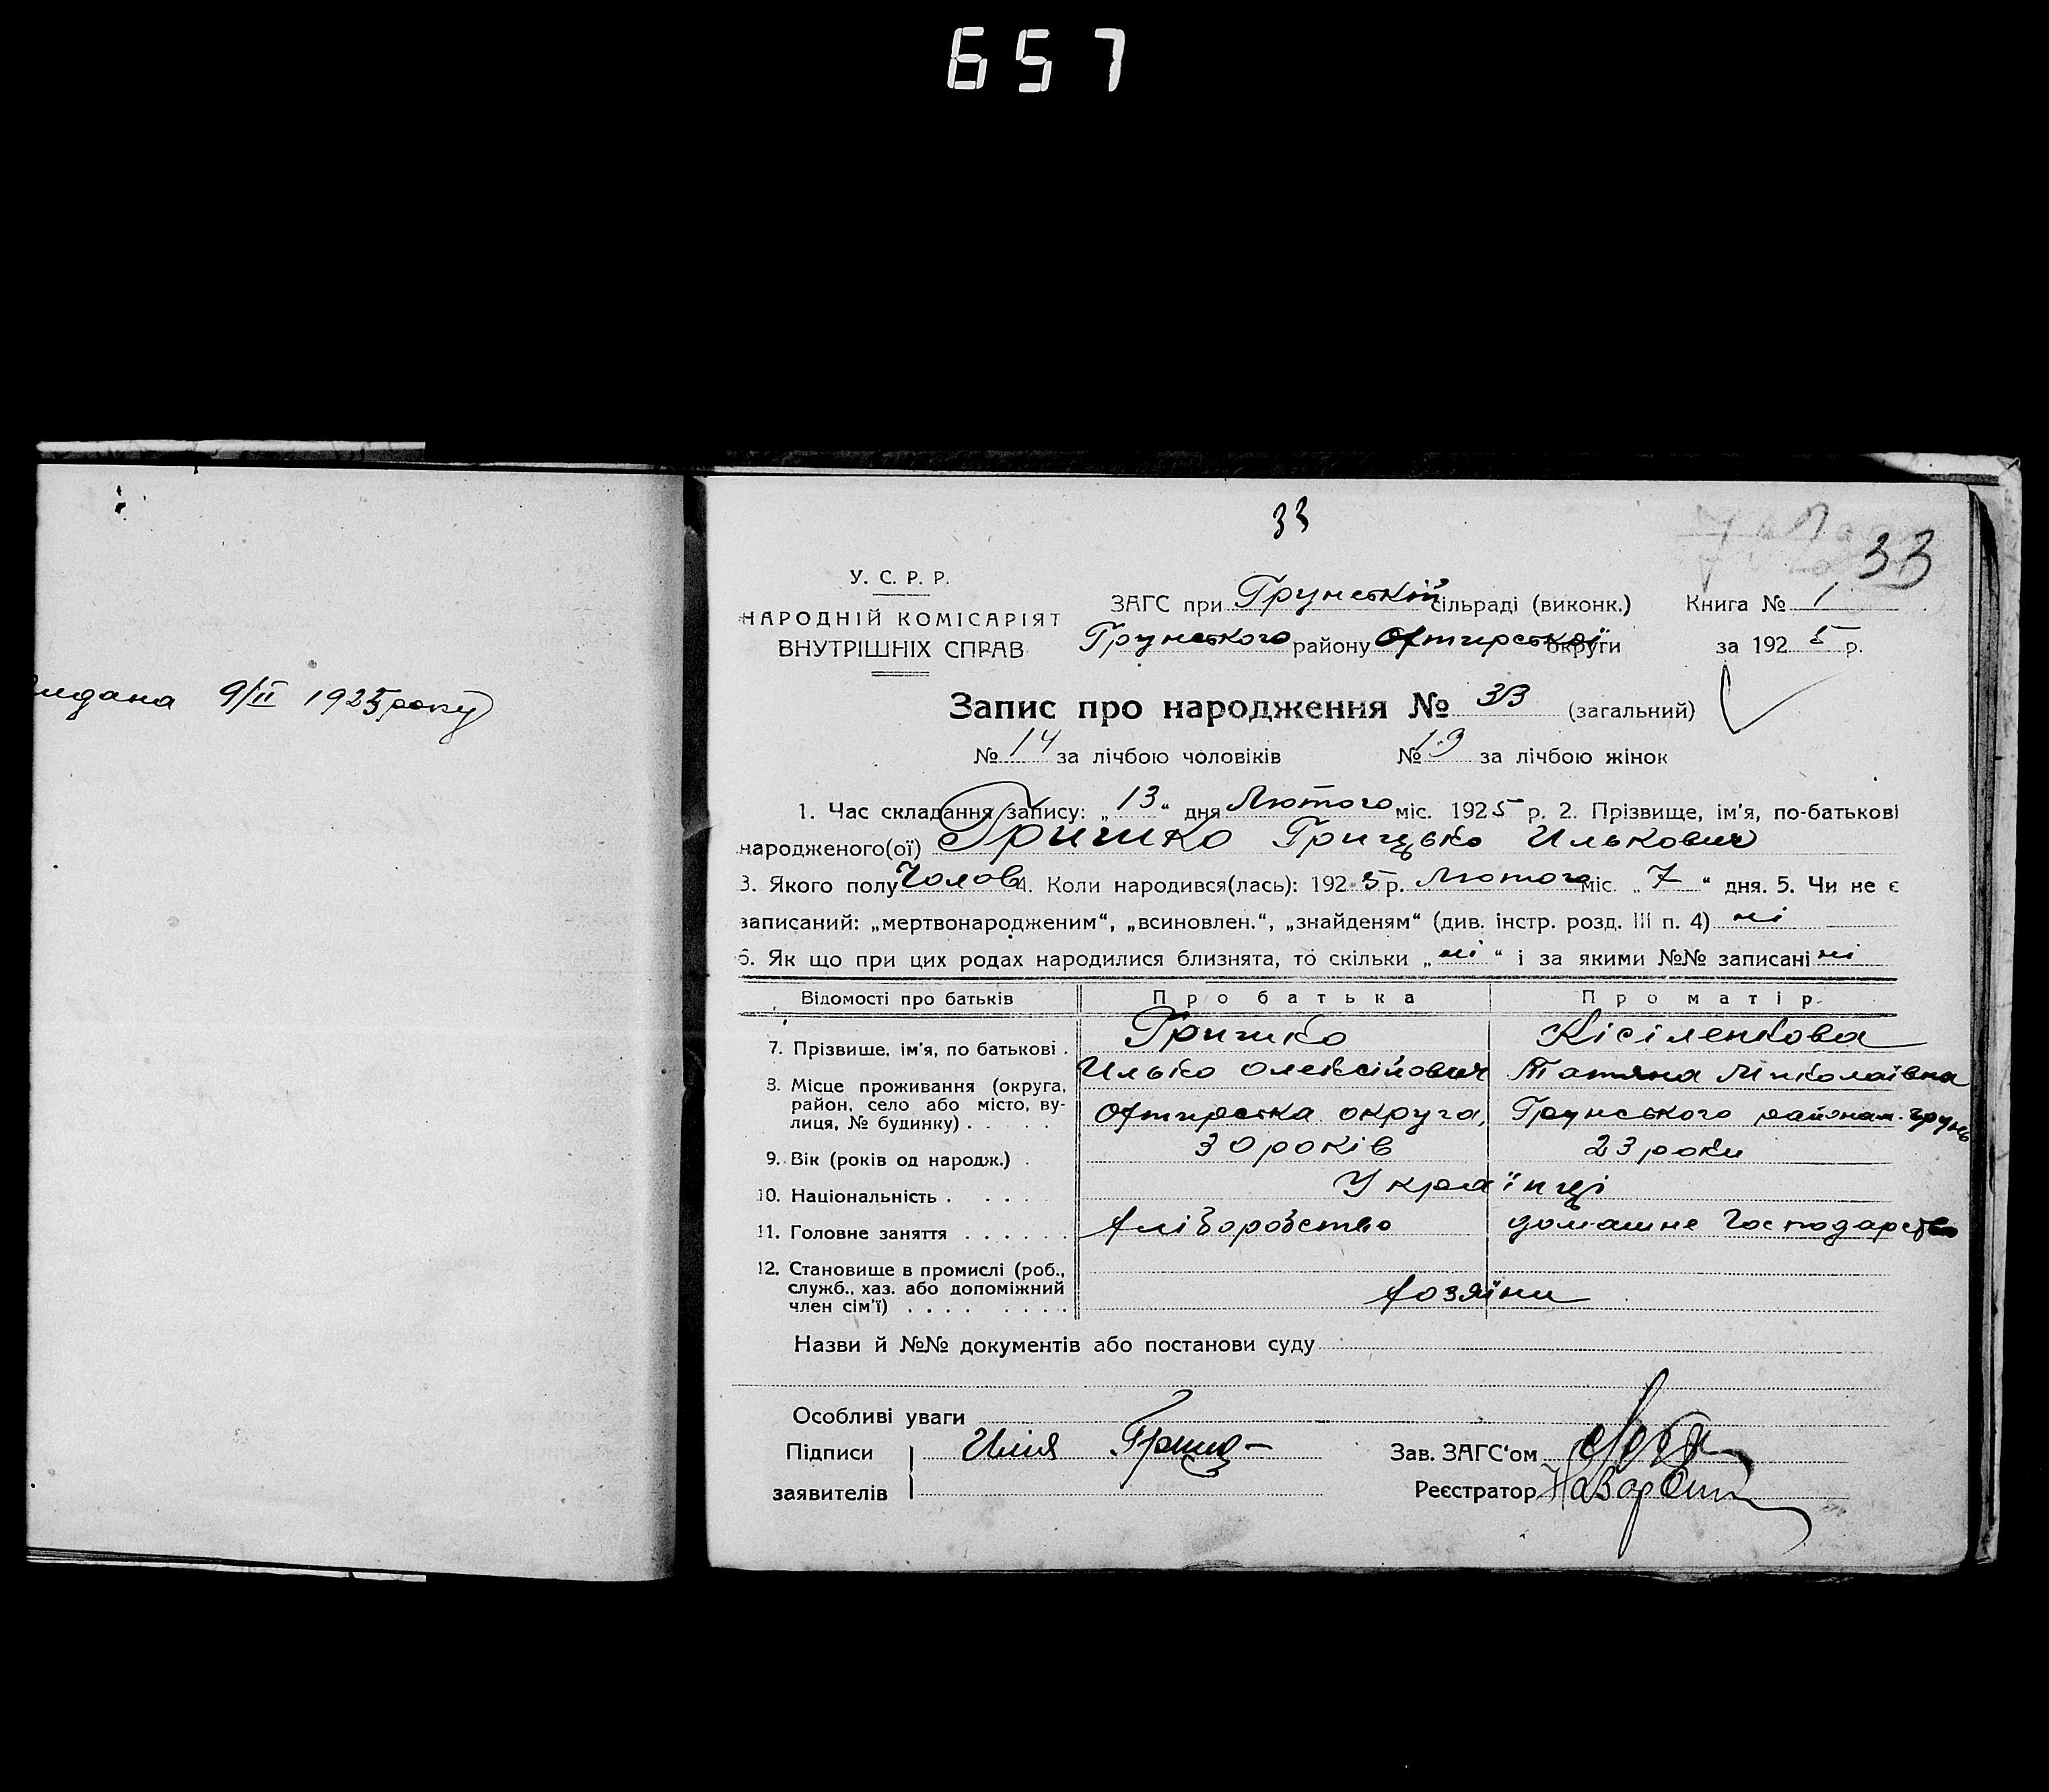 657
33
33
видана 9/II 1925 року
У. С. Р. Р.
НАРОДНІЙ КОМІСАРІЯТ
ВНУТРІШНІХ СПРАВ
ЗАГС при Грунській сільраді (виконк.) Книга № 1
Грунського району Охтирської округи за 1925 р.
Запис про народження № 33 (загальний)
№ 14 за лічбою чоловіків № 19 за лічбою жінок
1. Час складання запису: „13“ дня Лютого міс. 1925 р. 2. Прізвище, ім'я, по-батькові
народженого(ої) Гришко Грицько Илькович
3. Якого полу Чолов. 4. Коли народився(лась): 1925 р. Лютого міс. „7“ дня. 5. Чи не є
записаний: „мертвонародженим“, „всиновлен.“, „знайденям“ (див. інстр. розд. III п. 4) ні
6. Як що при цих родах народилися близнята, то скільки „ні“ і за якими №№ записані ні
Відомості про батьків Про батька Про матір
7. Прізвище, ім'я, по батькові . Гришко Кісіленкова
Илько Олексійович Татяна Миколаівна
8. Місце проживання (округа,
район, село або місто, ву-
лиця, № будинку) . . . . . Охтирська округа, Грунського района м. Грунь
9. Вік (років од народж.) . 30 років 23 роки
10. Національність . . . . Українці
11. Головне заняття . . . . . . хліборобство домашне господарство
12. Становище в промислі (роб.,
служб., хаз. або допоміжний
член сім'ї) . . . . . . . . хозяїни
Назви й №№ документів або постанови суду
Особливі уваги
Підписи Илія Гришко Зав. ЗАГС'ом
заявителів Реєстратор